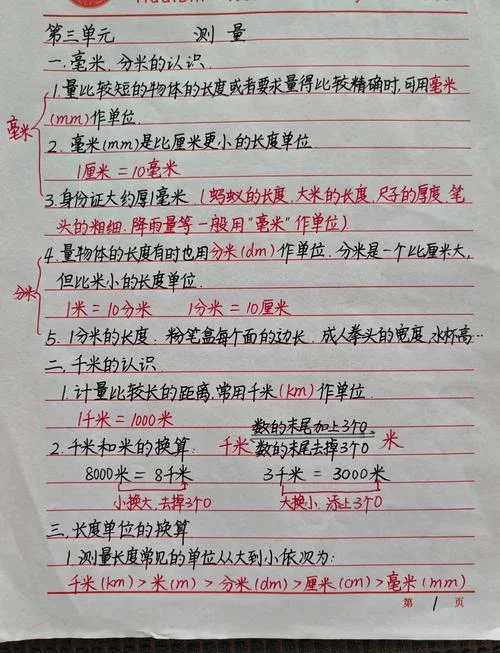 第三单元 测量
一.毫米,分米的认识.
1.量比较短的物体的长度或者要求量得比较精确时,可用毫米
(mm)作单位.
毫米
2. 毫米(mm)是比厘米更小的长度单位
1厘米 = 10毫米
3.身份证大约厚1毫米 (蚂蚁的长度,大米的长度,尺子的厚度,笔
头的粗细.降雨量等一般用"毫米"作单位)
4.量物体的长度有时也用分米(dm)作单位.分米是一个比厘米大,
但比米小的长度单位.
分米
1米 = 10分米 1分米 = 10厘米
5. 1分米的长度: 粉笔盒每个面的边长. 成人拳头的宽度,水杯高…
二,千米的认识.
1.计量比较长的距离,常用千米(km)作单位.
1千米 = 1000米
2.千米和米的换算: 千米 数的末尾加上3个0 米
数的末尾去掉3个0
8000米 = 8千米 3千米 = 3000米
小换大,去掉3个0 大换小,添上3个0
三.长度单位的换算
1.测量长度常见的单位从大到小依次为:
千米(km)>米(m)>分米(dm)>厘米(cm)>毫米(mm)
第 1 页